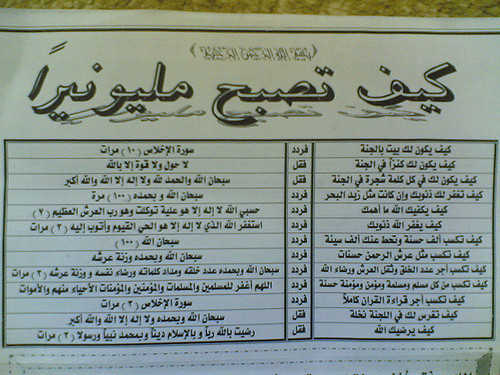 بسم الله الرحمن الرحيم
كيف تصبح مليونيراً
كيف يكون لك بيت بالجنة فردد سورة الإخلاص (١٠) مرات
كيف يكون لك كنزاً في الجنة فقل لا حول ولا قوة إلا بالله
كيف يكون لك في كل كلمة شجرة في الجنة فقل سبحان الله والحمد لله ولا إله إلا الله والله أكبر
كيف تغفر لك ذنوبك وإن كانت مثل زبد البحر فردد سبحان الله و بحمده (١٠٠) مرة
كيف يكفيك الله ما أهمك فردد حسبي الله لا إله إلا هو علية توكلت وهو رب العرش العظيم (٧)
كيف يغفر الله ذنوبك فردد استغفر الله الذي لا إله إلا هو الحي القيوم وأتوب إليه (٣) مرات
كيف تكسب ألف حسنة وتحط عنك ألف سيئة فردد سبحان الله (١٠٠)
كيف تكسب مثل عرش الرحمن حسنات فردد سبحان الله وبحمده وزنة عرشه
كيف تكسب أجر عدد الخلق وثقل العرش ورضاء الله فردد سبحان الله وبحمده عدد خلقه ومداد كلماته ورضاء نفسه وزنة عرشه (٣) مرات
كيف تكسب من كل مسلم ومسلمة ومؤمن ومؤمنة حسنة فردد اللهم أغفر للمسلمين والمسلمات والمؤمنين والمؤمنات الأحياء منهم والأموات
كيف تكسب أجر قراءة القران كاملاً فردد سورة الإخلاص (٣) مرات
كيف تغرس لك في اللجنة نخلة فقل سبحان الله وبحمده ولا إله إلا الله والله أكبر
كيف يرضيك الله فقل رضيت بالله رباً و بالإسلام ديناً وبمحمد نبياً ورسولا (٣) مرات